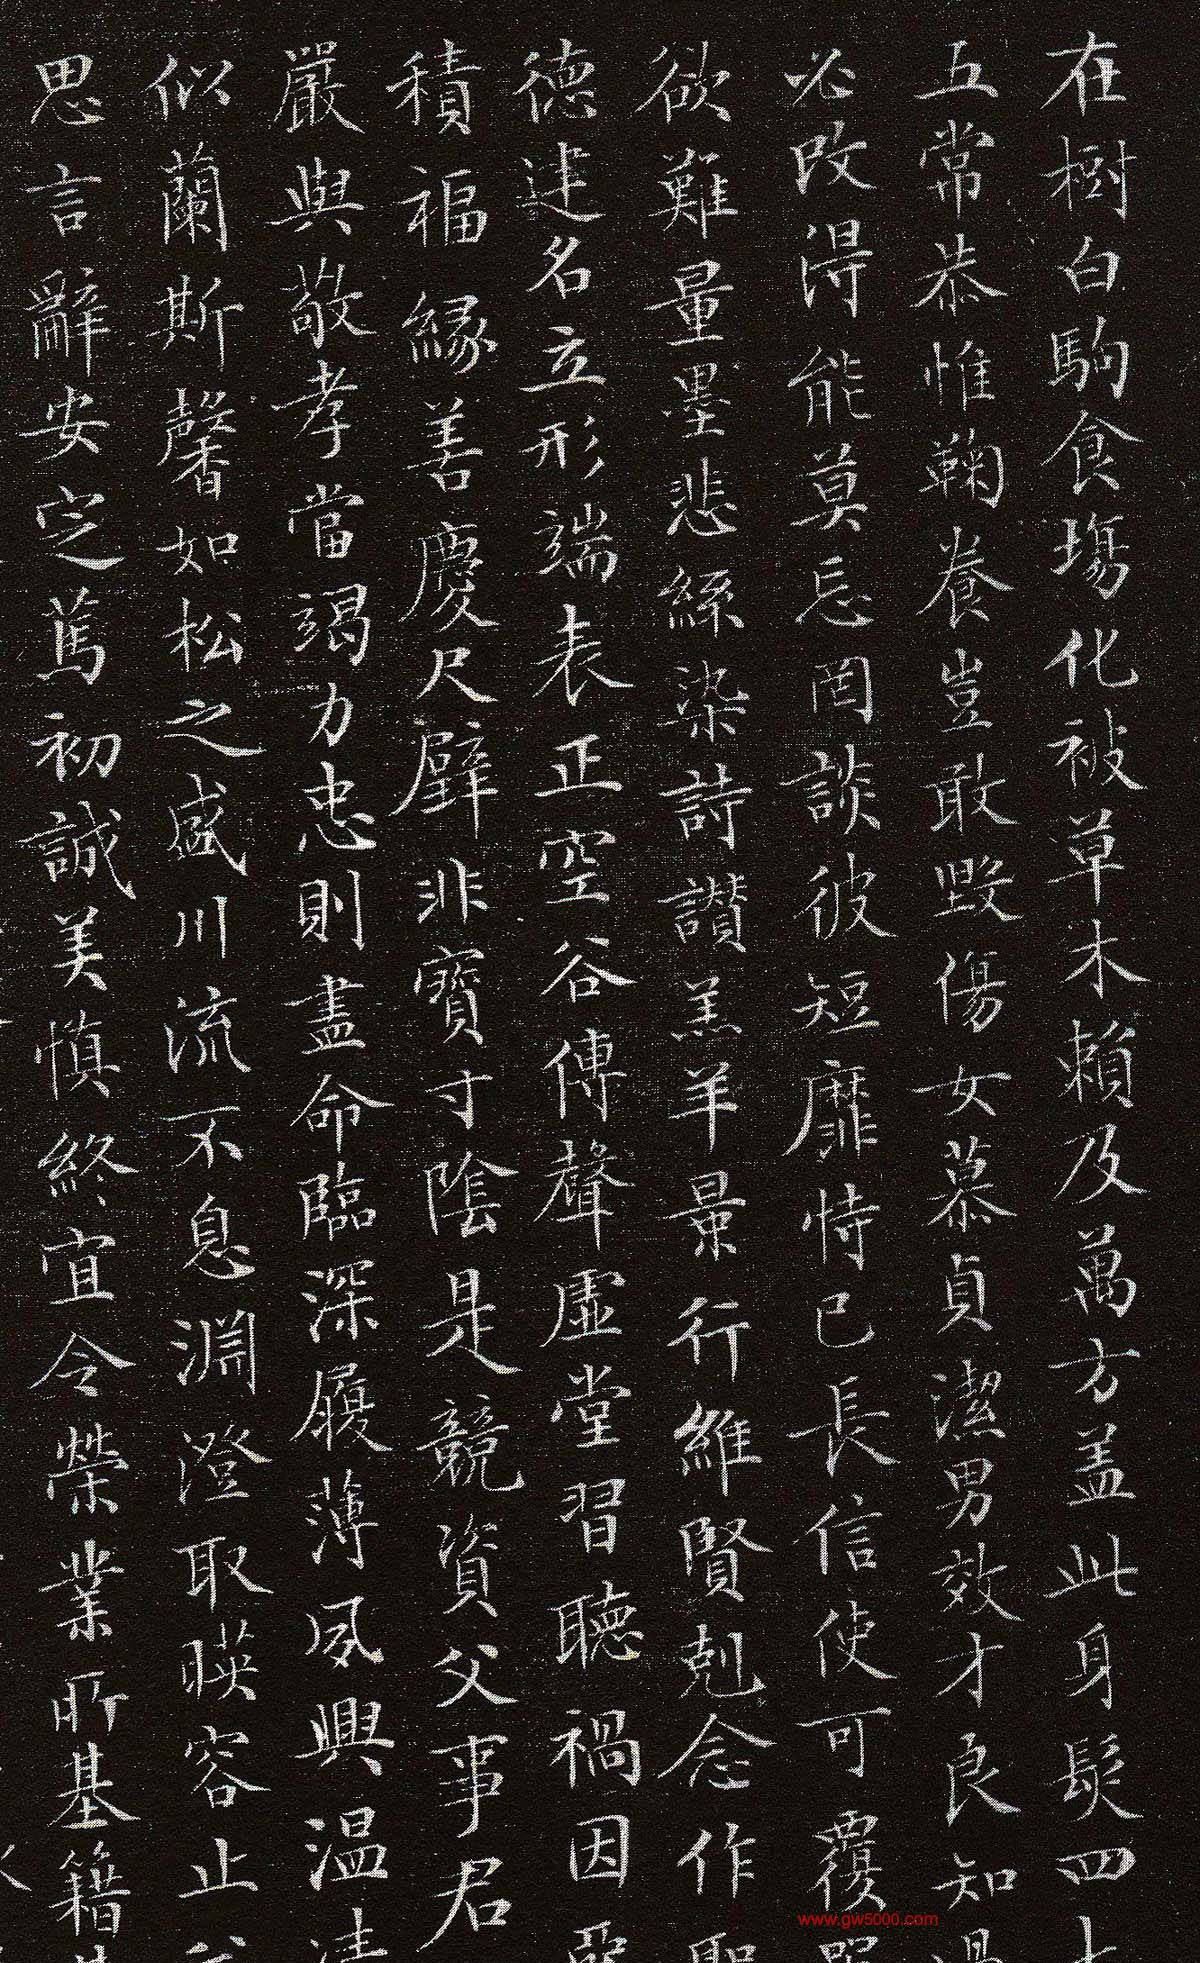 在樹白駒食場化被草木賴及萬方盖此身髮四
五常恭惟鞠養豈敢毀傷女慕貞潔男效才良知過
必改得能莫忘罔談彼短靡恃己長信使可覆器
欲難量墨悲絲染詩讃羔羊景行維賢剋念作聖
德建名立形端表正空谷傳聲虛堂習聽禍因惡
積福緣善慶尺璧非寶寸陰是競資父事君
嚴與敬孝當竭力忠則盡命臨深履薄夙興温
似蘭斯馨如松之盛川流不息淵澄取暎容止
思言辭安定篤初誠美慎終宜令榮業所基籍
www.gw5000.com